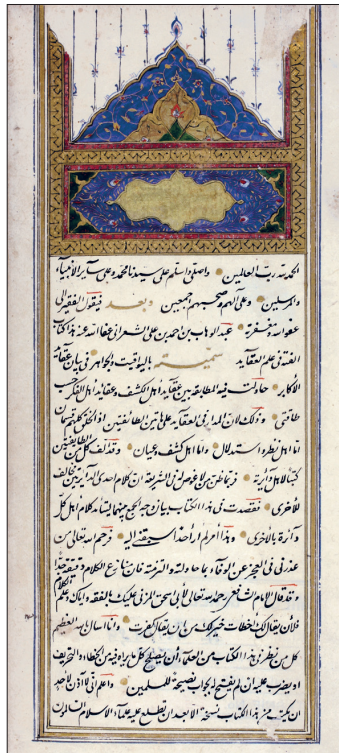 الحمد لله رب العالمين واصلى واسلم على سيدنا محمد وعلى ساير الانبياء
والمرسلين وعلى آلهم وصحبهم اجمعين وبعد فيقول الفقير الى
عفو الله ومغفرته عبد الوهاب بن احمد بن على الشعرانى عفا الله عنه هذا كتاب
الفته فى علم العقايد سميته باليواقيت والجواهر فى بيان عقايد
الاكابر حاولت فيه المطابقة بين عقايد اهل الكشف وعقايد اهل الفكر حسب
طاقتى وذلك لان المدار فى العقايد على هاتين الطائفتين اذ الخلق كلهم قسمان
اما اهل نظر واستدلال واما اهل كشف وعيان وقد الف كل من الطائفتين
كتبا لاهل دايرته فربما ظن من لا غوص له فى الشريعة ان كلام احدى الدايرتين مخالف
للاخرى فقصدت فى هذا الكتاب بيان وجه الجمع بينهما ليتأيد كلام اهل كل
دائرة بالاخرى وهذا امر لم ار احدا سبقنى اليه فرحم الله تعالى من
عذرنى فى العجز عن الوفاء بما حاولته والتزمته فان منازع الكلام دقيقة جدا
وقد قال الامام الشافعى رحمه الله تعالى لابى اسحق المزنى عليك بالفقه واياك وعلم الكلام
فلأن يقال لك اخطات خير لك من ان يقال كفرت وانا اسال الله العظيم
كل من نظر فى هذا الكتاب من العلماء ان يصلح كل ما يراه فيه من الخطاء والتحريف
او يضرب عليه ان لم يفتح له بجواب نصيحة للمسلمين واعلم انى لا آذن لاحد
ان يكتب من هذا الكتاب نسخة الا بعد ان يطلع عليه علماء الاسلام